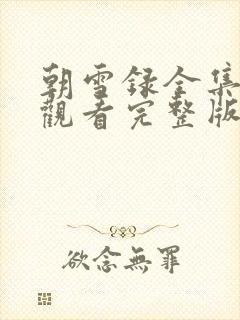 朝雪录全集
觀看完整版
欲念無罪